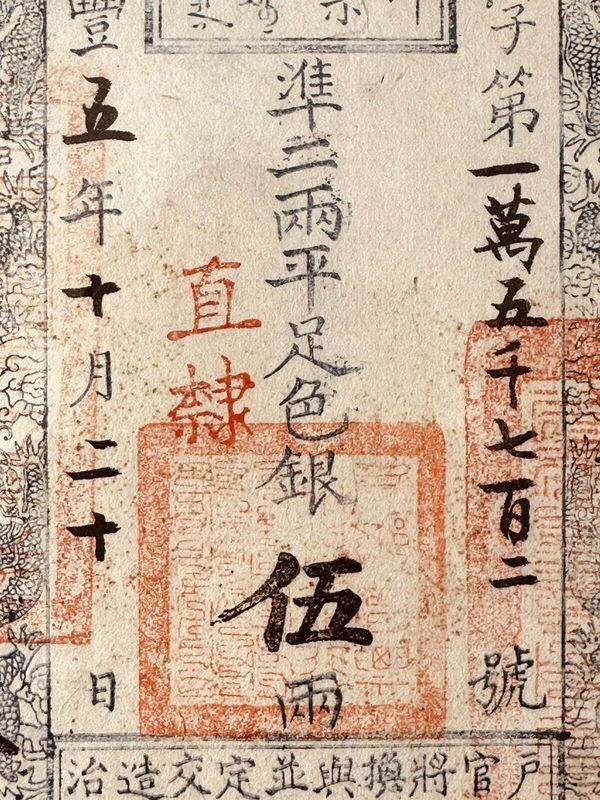 子第一萬五千七百二號
準二兩平足色銀伍兩
直隸
豐五年十月二十日
戶官將換與並定交造治